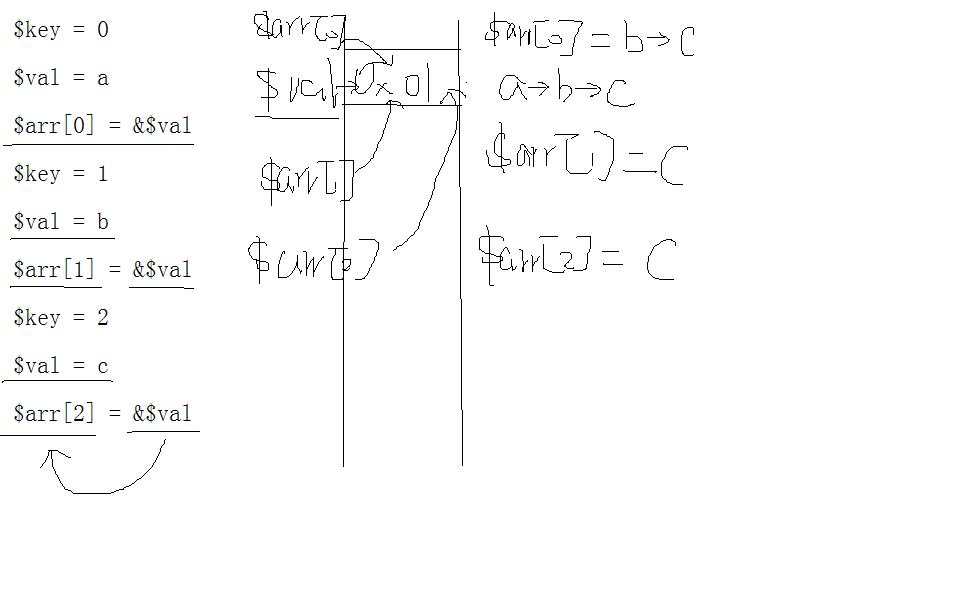 $key = 0
$val = a
$arr[0] = &$val
$key = 1
$val = b
$arr[1] = &$val
$key = 2
$val = c
$arr[2] = &$val
$arr[0]
$val 0x01
$arr[1]
$arr[2]
$arr[0] = b→c
a→b→c
$arr[1] = c
$arr[2] = c